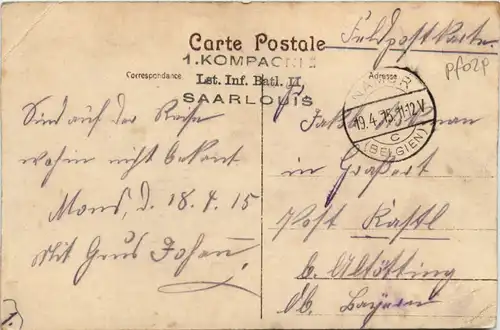 Feldpostkarte
Carte Postale
pf02p
1. KOMPAGNIE
Correspondance
Adresse
Lst. Inf. Batl. II
SAARLOUIS
NAMUR
19.4.15.11-12V
C
(BELGIEN)
Sind auf der Reise
wohin nicht bekant
Mons, d. 18.4.15
Mit Grus Johann
in
Post Kastl
b. Altötting
Ob. Bayern
1.